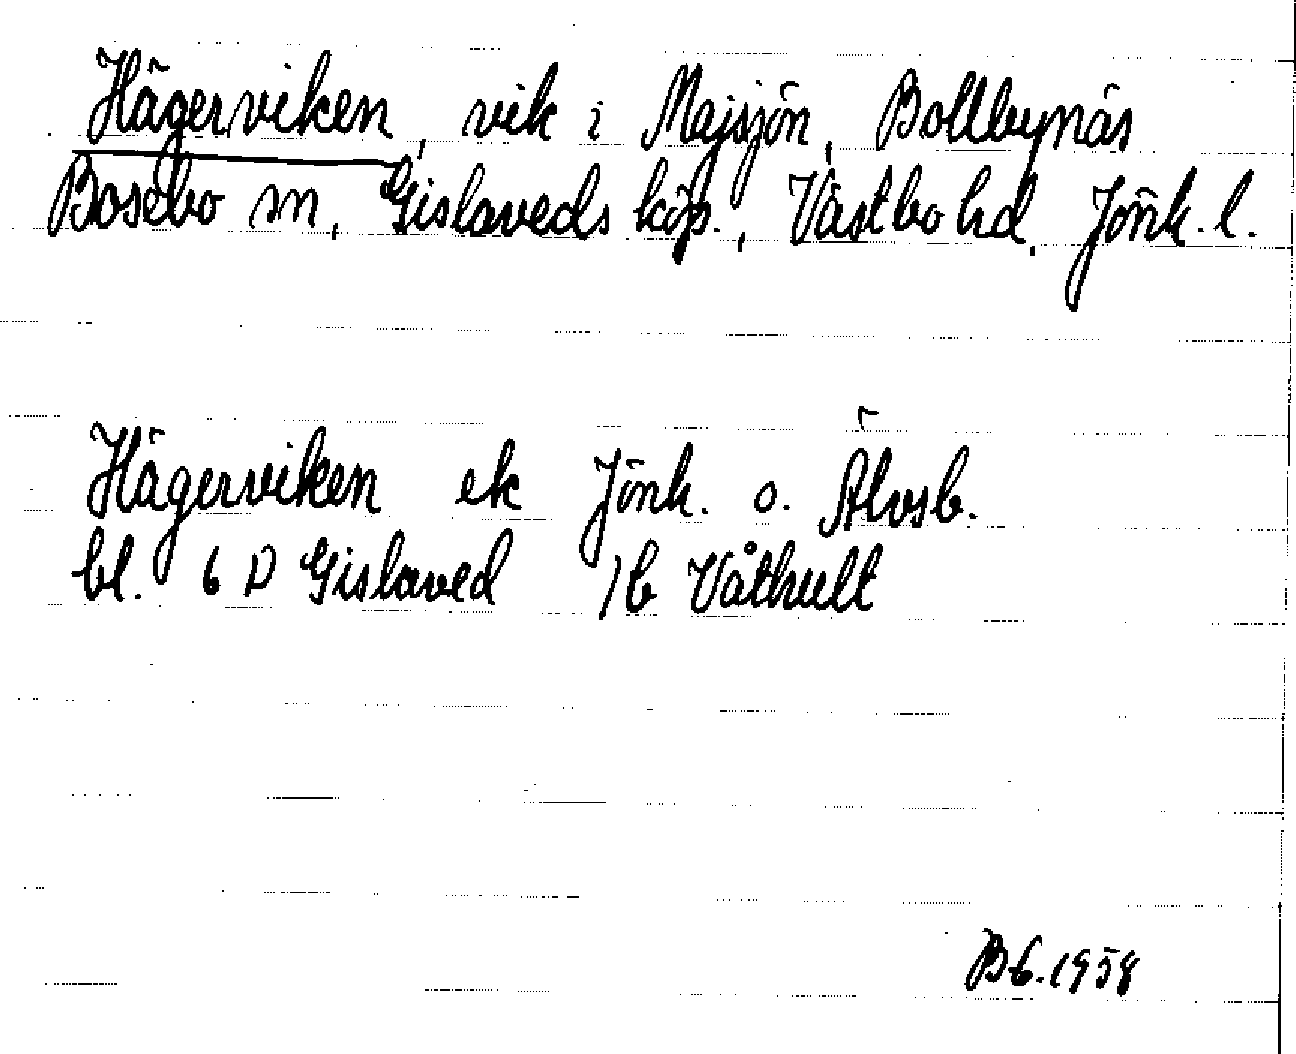 Hägerviken, vik i Majsjön, Bollbynäs
Bosebo sn, Gislaveds köp., Västbo hd, Jönk. l.
Hägerviken ek Jönk. o. Älvsb.
bl. 6 D Gislaved /b Våthult
B6.1958